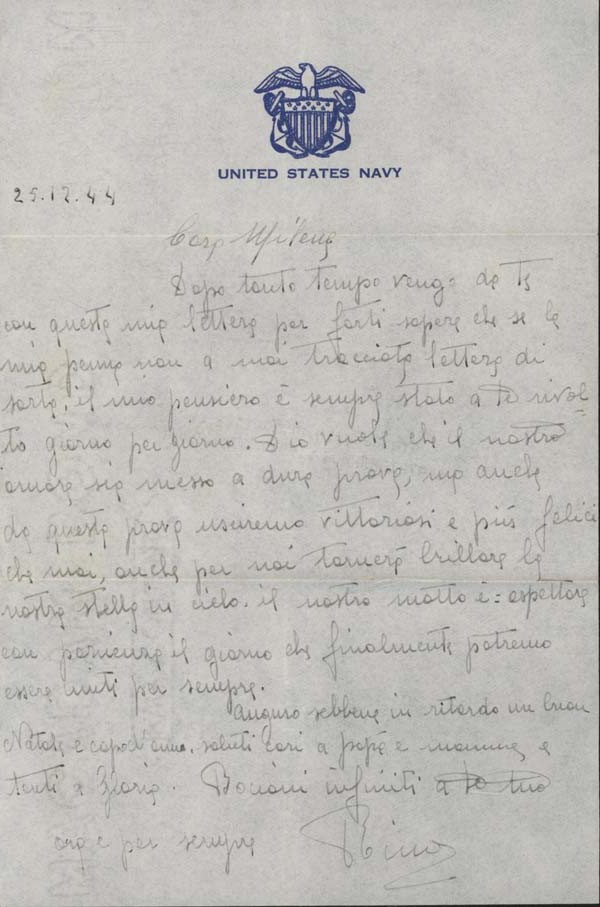 UNITED STATES NAVY
25.12.44
Cara Milena
Dopo tanto tempo vengo da te
con questa mia lettera per farti sapere che se la
mia penna non a mai tracciata lettera di
sorta, il mio pensiero è sempre stato a te rivol-
to giorno per giorno. Dio vuole che il nostro
amore sia messo a dura prova, ma anche
da questa prova usciremo vittoriosi e più felici
che mai, anche per noi tornerà brillare la
nostra stella in cielo. il nostro motto è: aspettare
con pazienza il giorno che finalmente potremo
essere uniti per sempre.
Auguro sebbene in ritardo un buon
Natale e capod'anno. saluti cari a papà e mamma e
tanti a . Bacioni infiniti tuo
ora e per sempre